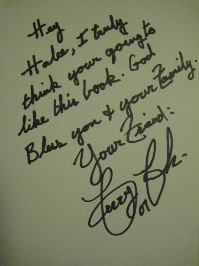 Hey
Habs, I truly
think your going to
like this book. God
Bless you & your Family.
Your Friend: